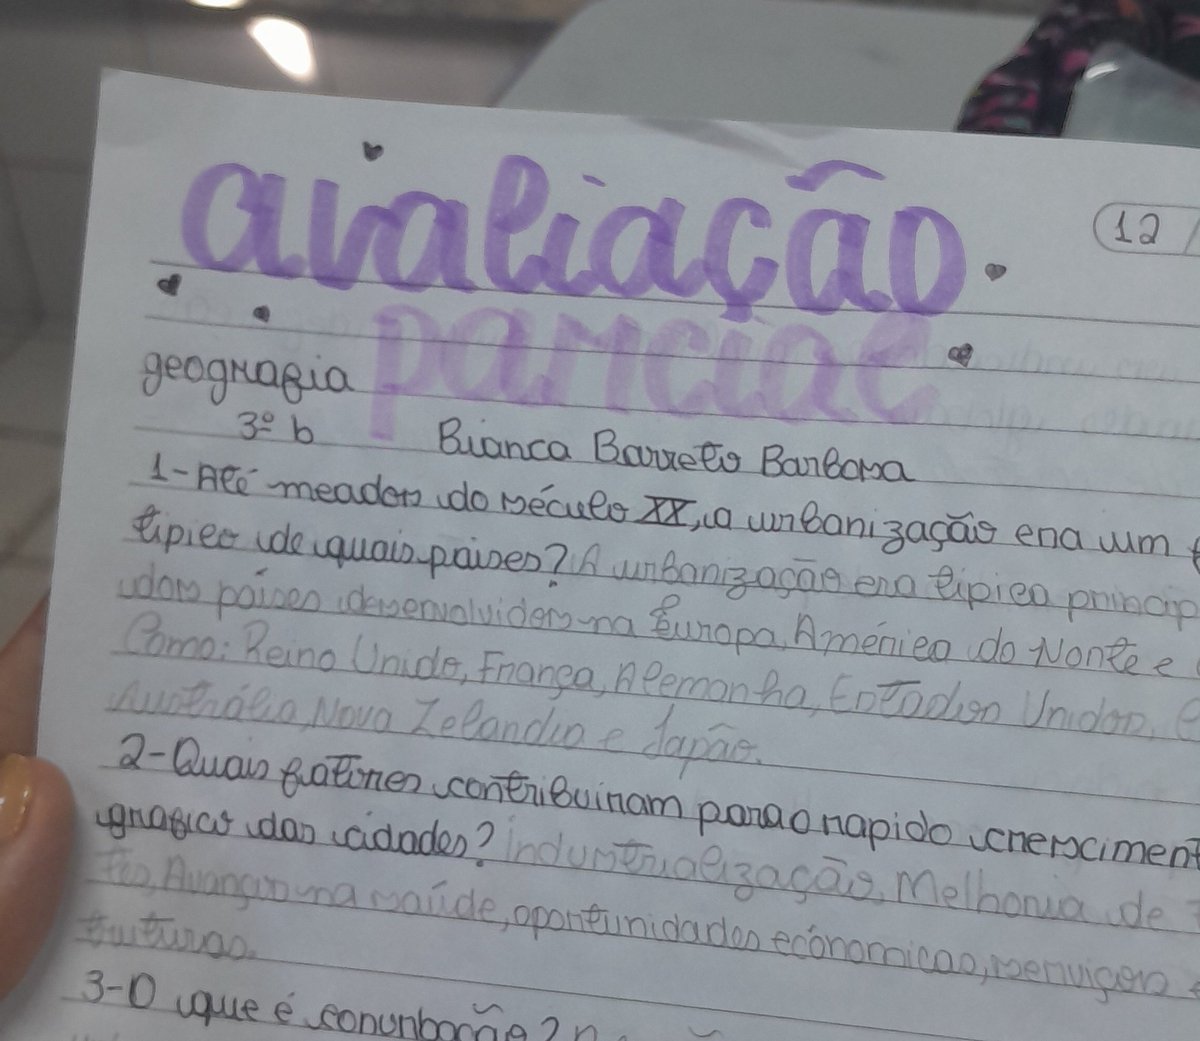 avaliação
12 /
parcial
geografia
3º b Bianca Barreto Barbosa
1-Até meados do século XX, a urbanização era um
típico de quais países? A urbanização era típica princip
dos países desenvolvidos na Europa, América do Norte e
Como: Reino Unido, França, Alemanha, Estados Unidos,
Austrália, Nova Zelandia e Japão.
2-Quais fatores contribuiram para o rapido cresciment
grafico das cidades? industrialização, Melhoria de
Avanços na saúde, oportunidades econômicas, serviços
3-O que é conurbação?